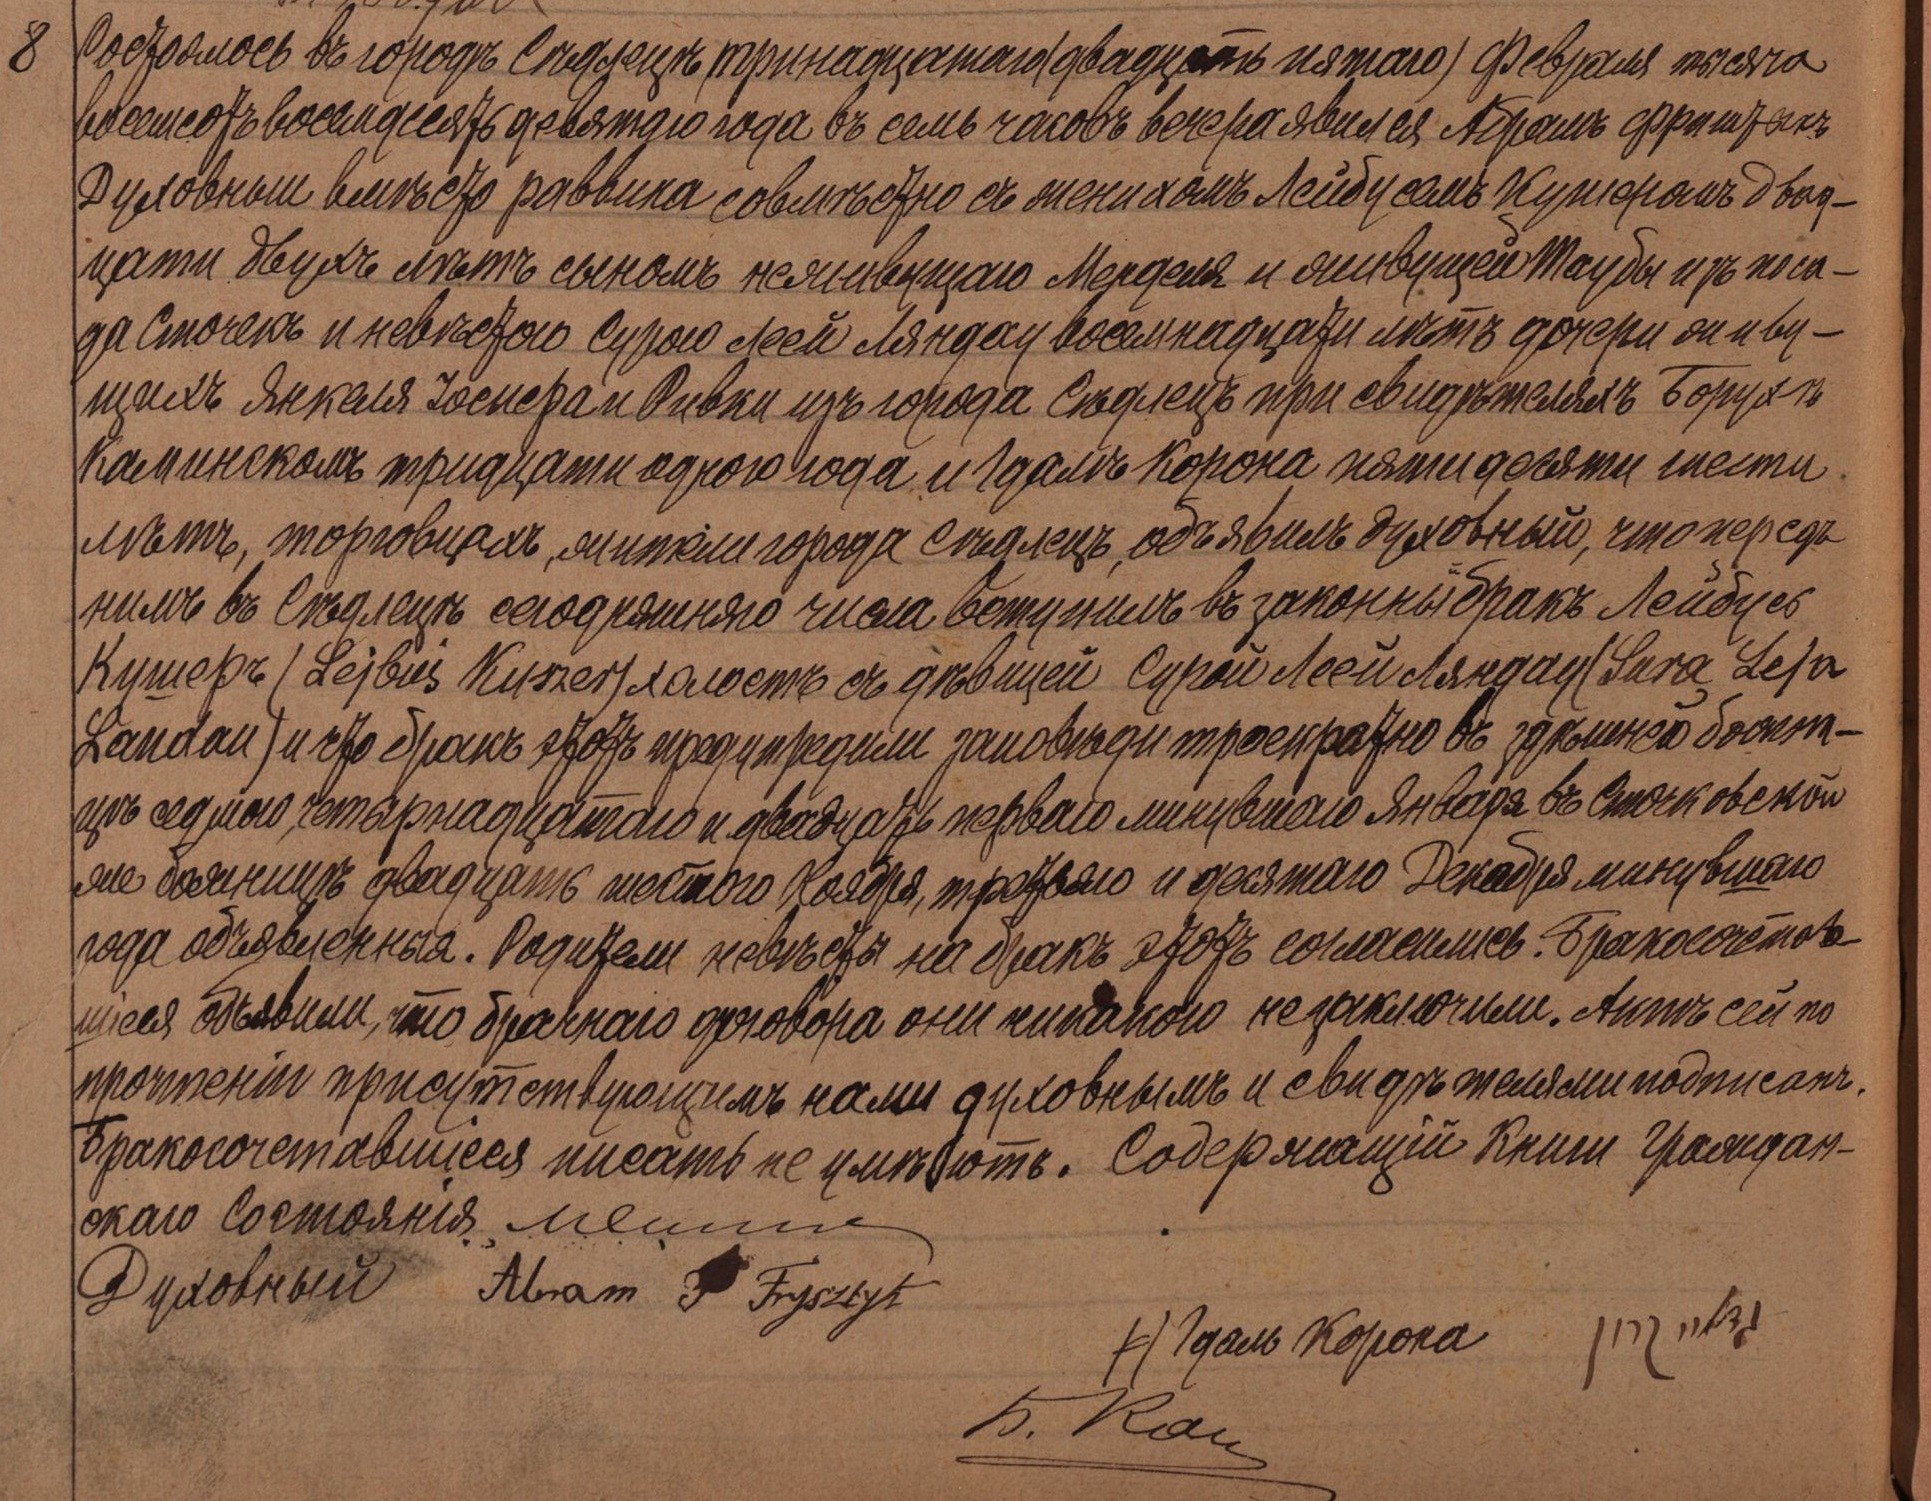 8 Состоялось въ городѣ Сѣдлецѣ тринадцатаго (двадцать пятаго) Февраля тысяча
восемсотъ восемдесятъ девятаго года въ семь часовъ вечера явился Абрамъ Фриштыкъ
Духовный вмѣсто раввина совмѣстно съ женихомъ Лейбусемъ Кушеромъ двад-
цати двухъ лѣтъ сыномъ неживущаго Менделя и живущей Таубы изъ поса-
да Сточекъ и невѣстою Сурою Леей Ляндау восемнадцати лѣтъ дочери живу-
щихъ Янкеля Іоснера и Ривки изъ города Сѣдлецъ при свидѣтеляхъ Борухѣ
Каминскомъ тридцати одного года и Гдалѣ Корона пятидесяти шести
лѣтъ, торговцахъ, жители города Сѣдлецъ, объявилъ духовный, что передъ
нимъ въ Сѣдлецѣ сегодняшняго числа вступилъ въ законный бракъ Лейбусь
Кушеръ (Lejbuś Kuszer) холостъ съ дѣвицей Сурой Леей Ляндау (Sura Leja
Landau) и что бракъ этотъ предупредили заповѣди троекратно въ здѣшней божни-
цѣ седмого, четырнадцатаго и двадцать перваго минувшаго Января въ Сточковской
же божницѣ двадцать шестого Ноября, третьяго и десятаго Декабря минувшаго
года объявленныя. Родители невѣсты на бракъ этотъ согласились. Бракосочетав-
шіеся объявили, что брачнаго договора они никакого не заключили. Актъ сей по
прочтеніи присутствующимъ нами духовнымъ и свидѣтелями подписанъ.
Бракосочетавшіеся писать не умѣютъ. Содержащій Книги Граждан-
скаго Состоянія
Духовный Abram F Frysztyk
Гдаль Корона
Б. Кам